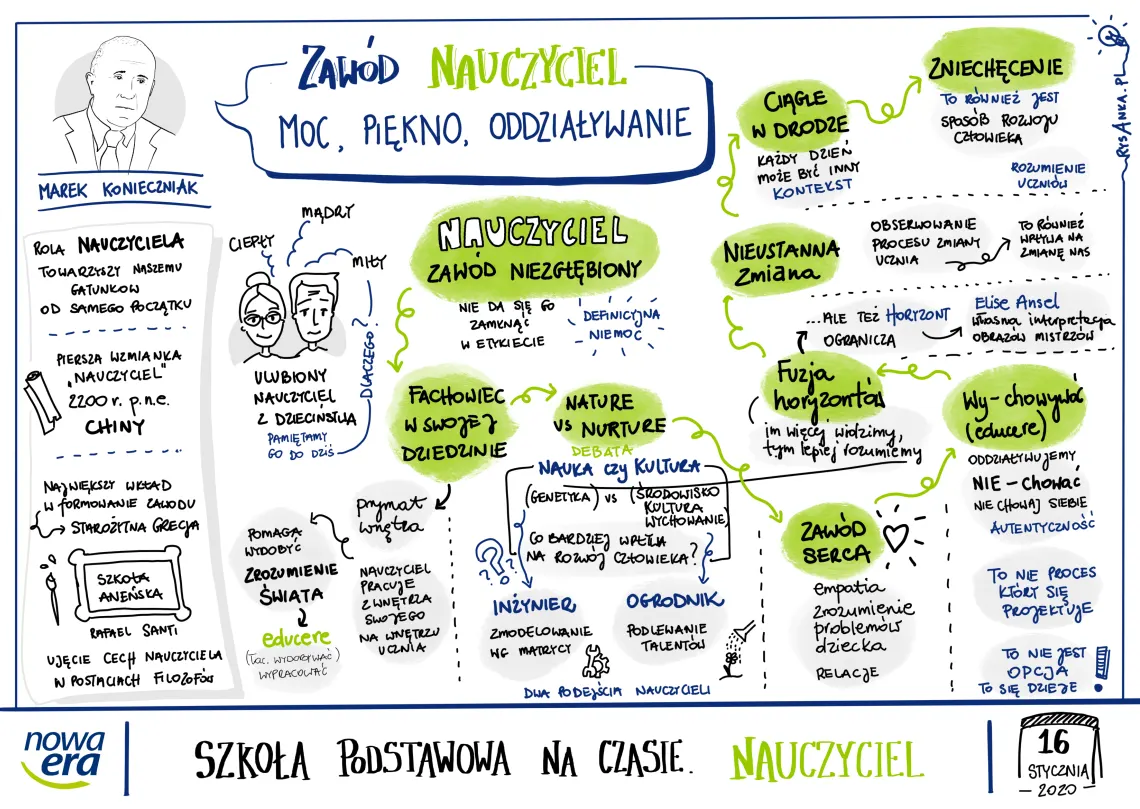 ZAWÓD NAUCZYCIEL
MOC, PIĘKNO, ODDZIAŁYWANIE
MAREK KONIECZNIAK
ROLA NAUCZYCIELA
TOWARZYSZY NASZEMU
GATUNKOWI
OD SAMEGO POCZĄTKU
PIERSZA WZMIANKA
„NAUCZYCIEL”
2200 r. p.n.e.
CHINY
NAJWIĘKSZY WKŁAD
W FORMOWANIE ZAWODU
→ STAROŻYTNA GRECJA
SZKOŁA
ATEŃSKA
RAFAEL SANTI
UJĘCIE CECH NAUCZYCIELA
W POSTACIACH FILOZOFÓW
CIEPŁY
MĄDRY
MIŁY
DLACZEGO?
ULUBIONY
NAUCZYCIEL
Z DZIECIŃSTWA
PAMIĘTAMY
GO DO DZIŚ
NAUCZYCIEL
ZAWÓD NIEZGŁĘBIONY
NIE DA SIĘ GO
ZAMKNĄĆ
W ETYKIECIE
DEFINICYJNA
NIEMOC
FACHOWIEC
W SWOJEJ
DZIEDZINIE
prymat
wnętrza
NAUCZYCIEL
PRACUJE
Z WNĘTRZA
SWOJEGO
NA WNĘTRZU
UCZNIA
POMAGA
WYDOBYĆ
ZROZUMIENIE
ŚWIATA
educere
(łac. WYDOBYWAĆ)
WYPRACOWAĆ
NATURE
VS NURTURE
DEBATA
NAUKA czy KULTURA
(GENETYKA) VS (ŚRODOWISKO
KULTURA
WYCHOWANIE)
CO BARDZIEJ WPŁYWA
NA ROZWÓJ CZŁOWIEKA?
INŻYNIER
ZMODELOWANIE
WG MATRYCY
OGRODNIK
PODLEWANIE
TALENTÓW
DWA PODEJŚCIA NAUCZYCIELI
ZAWÓD
SERCA
empatia
zrozumienie
problemów
dziecka
RELACJE
Wy-chowywać
(educere)
ODDZIAŁYWUJEMY
NIE-CHOWAĆ
NIE CHOWAJ SIEBIE
AUTENTYCZNOŚĆ
TO NIE PROCES
KTÓRY SIĘ
PROJEKTUJE
TO NIE JEST
OPCJA
TO SIĘ DZIEJE !
Fuzja
horyzontów
im więcej widzimy,
tym lepiej rozumiemy
...ALE TEŻ HORYZONT
OGRANICZA
Elise Ansel
własna interpretacja
OBRAZÓW MISTRZÓW
NIEUSTANNA
Zmiana
OBSERWOWANIE
PROCESU ZMIANY
UCZNIA
TO RÓWNIEŻ
WPŁYWA NA
ZMIANĘ NAS
CIĄGLE
W DRODZE
KAŻDY DZIEŃ
MOŻE BYĆ INNY
KONTEKST
ZNIECHĘCENIE
TO RÓWNIEŻ JEST
SPOSÓB ROZWOJU
CZŁOWIEKA
ROZUMIENIE
UCZNIÓW
RYSANKA.PL
nowa
era
SZKOŁA PODSTAWOWA NA CZASIE. NAUCZYCIEL
16
STYCZNIA
– 2020 –